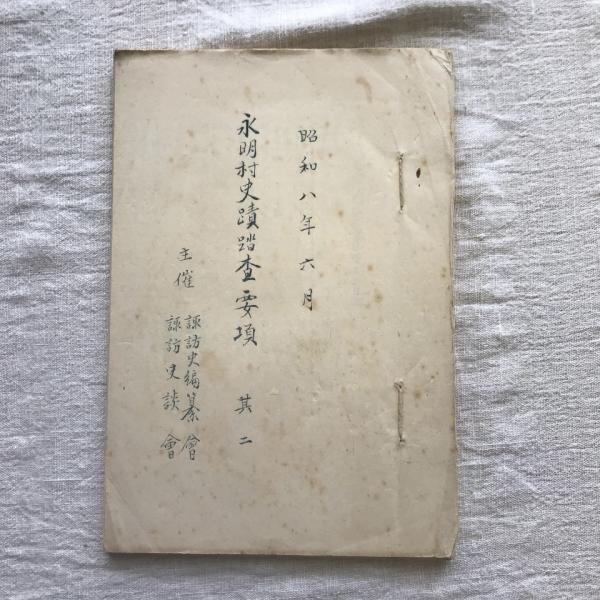 昭和八年六月
永明村史蹟踏査要項 其二
主催 諏訪史編纂會
諏訪史談會